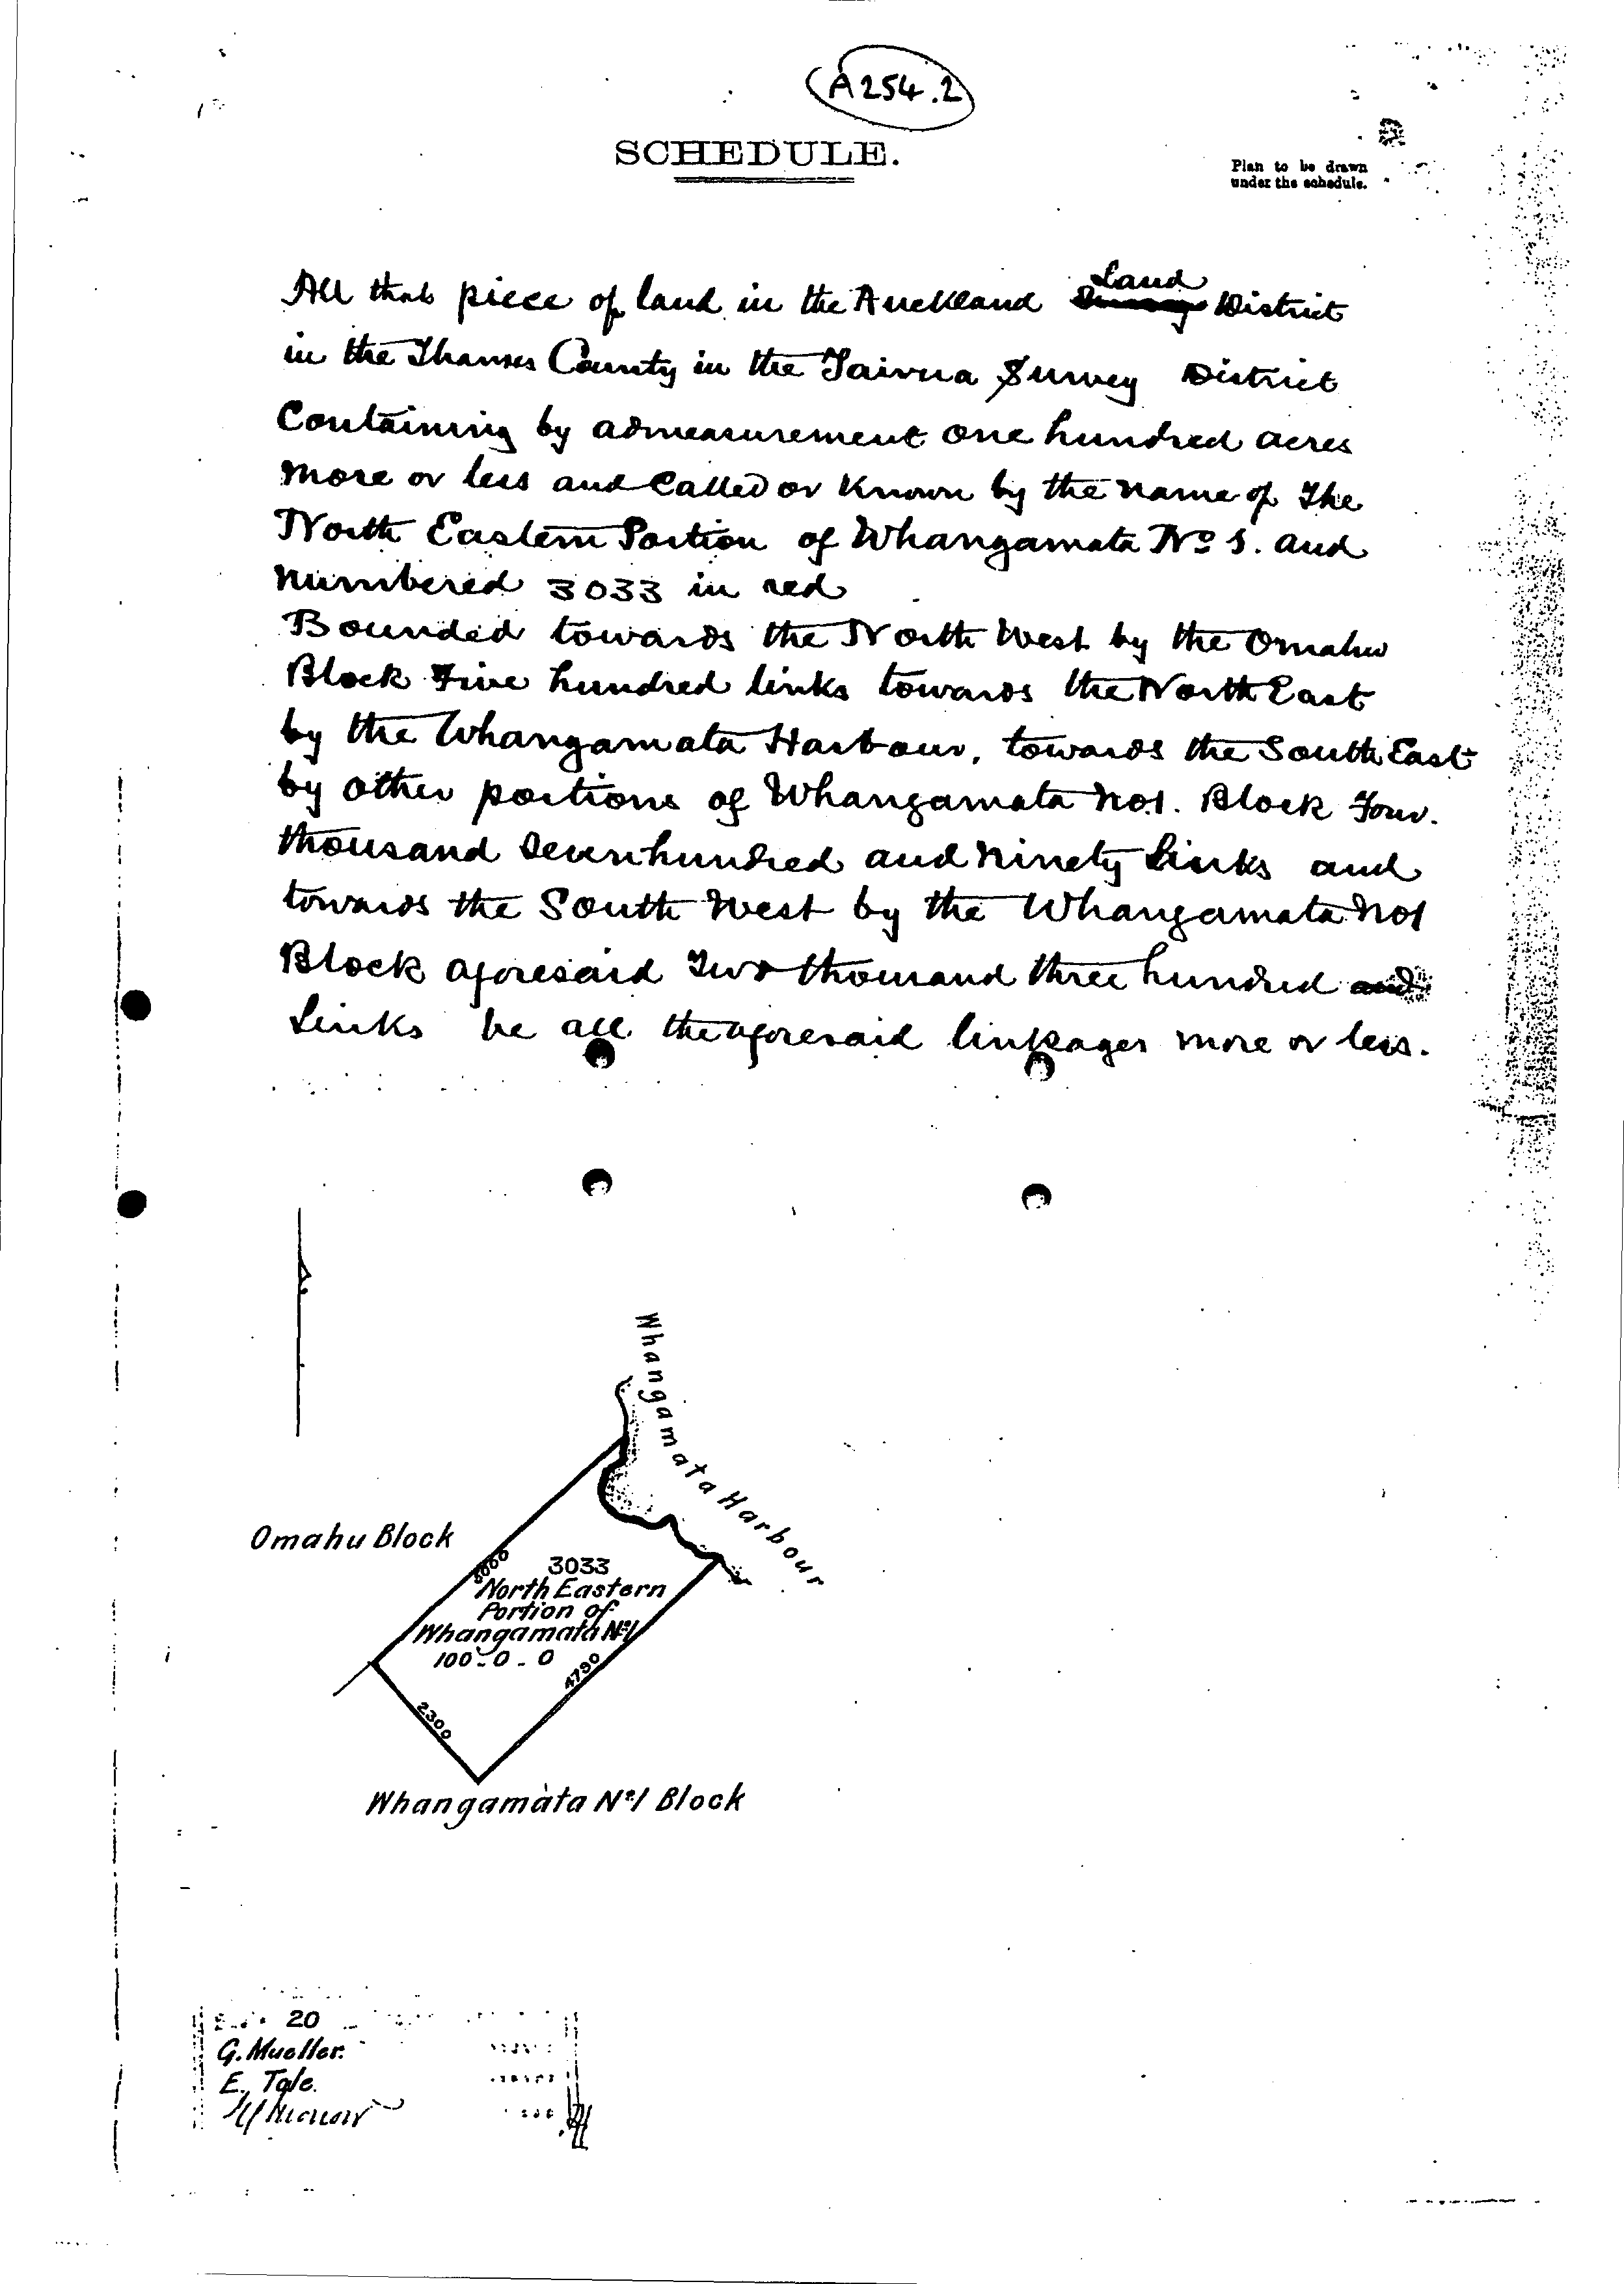 A254.2
SCHEDULE.
Plan to be drawn
under the schedule.
All that piece of land in the Auckland Land District
in the Thames County in the Tairua Survey District
Containing by admeasurement one hundred acres
more or less and called or known by the name of The
North Eastern Portion of Whangamata No 1. and
numbered 3033 in red
Bounded towards the North West by the Omahu
Block Five hundred links towards the North East
by the Whangamata Harbour, towards the South East
by other portions of Whangamata No1. Block Four.
thousand seven hundred and ninety Links and
towards the South West by the Whangamata No1
Block aforesaid Two thousand three hundred and
Links be all the aforesaid linkages more or less.
Whangamata Harbour
Omahu Block
5000
3033
North Eastern
Portion of
Whangamata No1
100-0-0
4790
2300
Whangamata No1 Block
20
G. Mueller.
E. Tole.